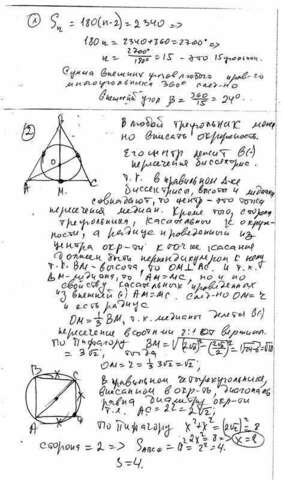 ① Sₙ = 180(n-2) = 2340 =>
180n = 2340+360 = 2700° =>
n = 2700°/180° = 15 - это 15угольник.
Сумма внешних углов любого прав-го
многоугольника 360° след-но
внешний угол β = 360/15 = 24°.
② В любой треугольник можно
но вписать окружность.
Его центр лежит в (·)
пересечения биссектрис.
т.к. в правильном Δ-ке
биссектрисы, высоты и медианы
совпадают, то центр - это точка
пересечения медиан. Кроме того, стороны
треугольника, касательные к окруж-
ности, а радиус проведенный из
центра окр-ти к точке касания
должен быть перпендикулярен к ней
т.к. BM - высота, то OM⊥AC. и т.к.
BM - медиана, то AM=MC, но и по
свойству касательных проведенных
из внешней (·) AM=MC. след-но OM=r
и есть радиус
OM = 1/3 BM, т.к. медианы делятся в (·)
пересечения в соотнош. 2:1 от вершины.
По Пифагору BM =
= 3√2, тогда
OM = r = 1/3 3√2 = √2.
В правильном четырехугольнике,
вписанном в окр-ть, диагональ
равна диаметру окр-ти
т.е. AC = 2r = 2√2;
По Пифагору x²+x² = (2√2)² = 8
2x² = 8 =>
сторона = 2 =>
S=4.
B
A
M
C
O
B
C
A
D
x